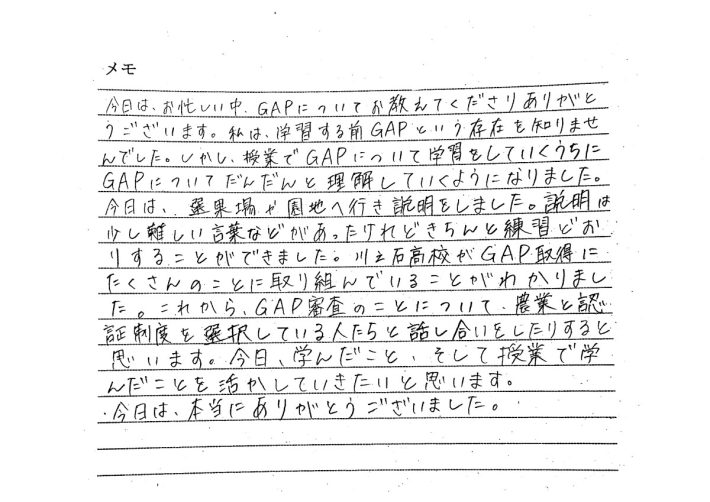 メモ
今日は、お忙しい中、GAPについてお教えてくださりありがと
うございます。私は、学習する前GAPという存在を知りませ
んでした。しかし、授業でGAPについて学習をしていくうちに
GAPについてだんだんと理解していくようになりました。
今日は、選果場や園地へ行き説明をしました。説明は
少し難しい言葉などがあったけれどきちんと練習どお
りすることができました。川之石高校がGAP取得に
たくさんのことに取り組んでいることがわかりまし
た。これから、GAP審査のことについて、農業と認
証制度を選択している人たちと話し合いをしたりすると
思います。今日、学んだこと、そして授業で学
んだことを活かしていきたいと思います。
今日は、本当にありがとうございました。